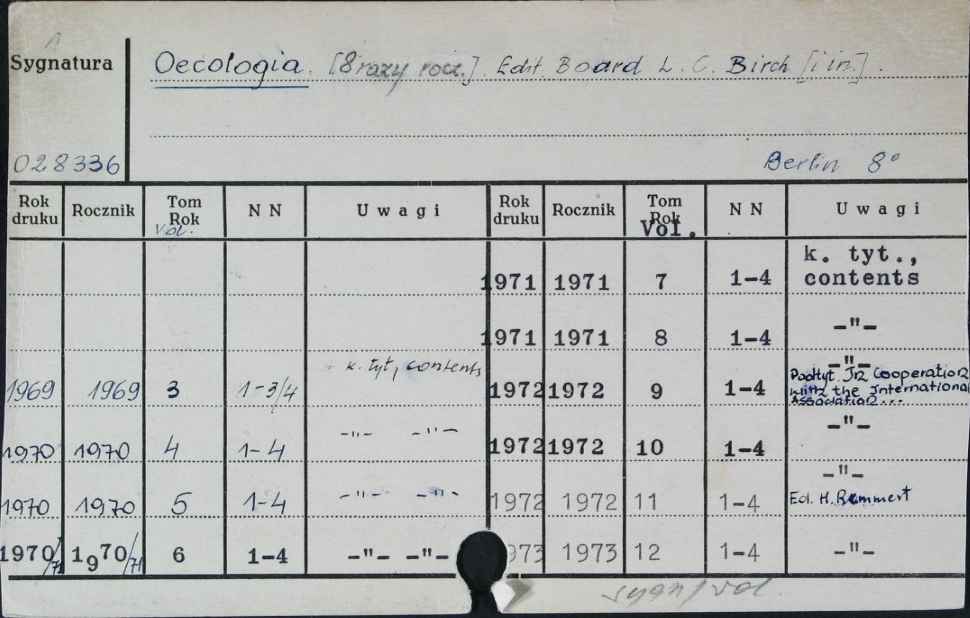 Sygnatura
Oecologia. [8 razy rocz.]. Edit. Board L. C. Birch [i in.].
028336
Berlin 8°
Rok druku Rocznik Tom Rok Vol. NN Uwagi Rok druku Rocznik Tom Rok Vol. NN Uwagi
1971 1971 7 1-4 k. tyt., contents
1971 1971 8 1-4 -"-
1969 1969 3 1-3/4 k. tyt, contents 1972 1972 9 1-4 -"- Podtyt. In Cooperation with the International Association...
1970 1970 4 1-4 -"- -"- 1972 1972 10 1-4 -"-
1970 1970 5 1-4 -"- -"- 1972 1972 11 1-4 -"- Ed. H. Remmert
1970/71 1970/71 6 1-4 -"- -"- 973 1973 12 1-4 -"-
sygn/vol.